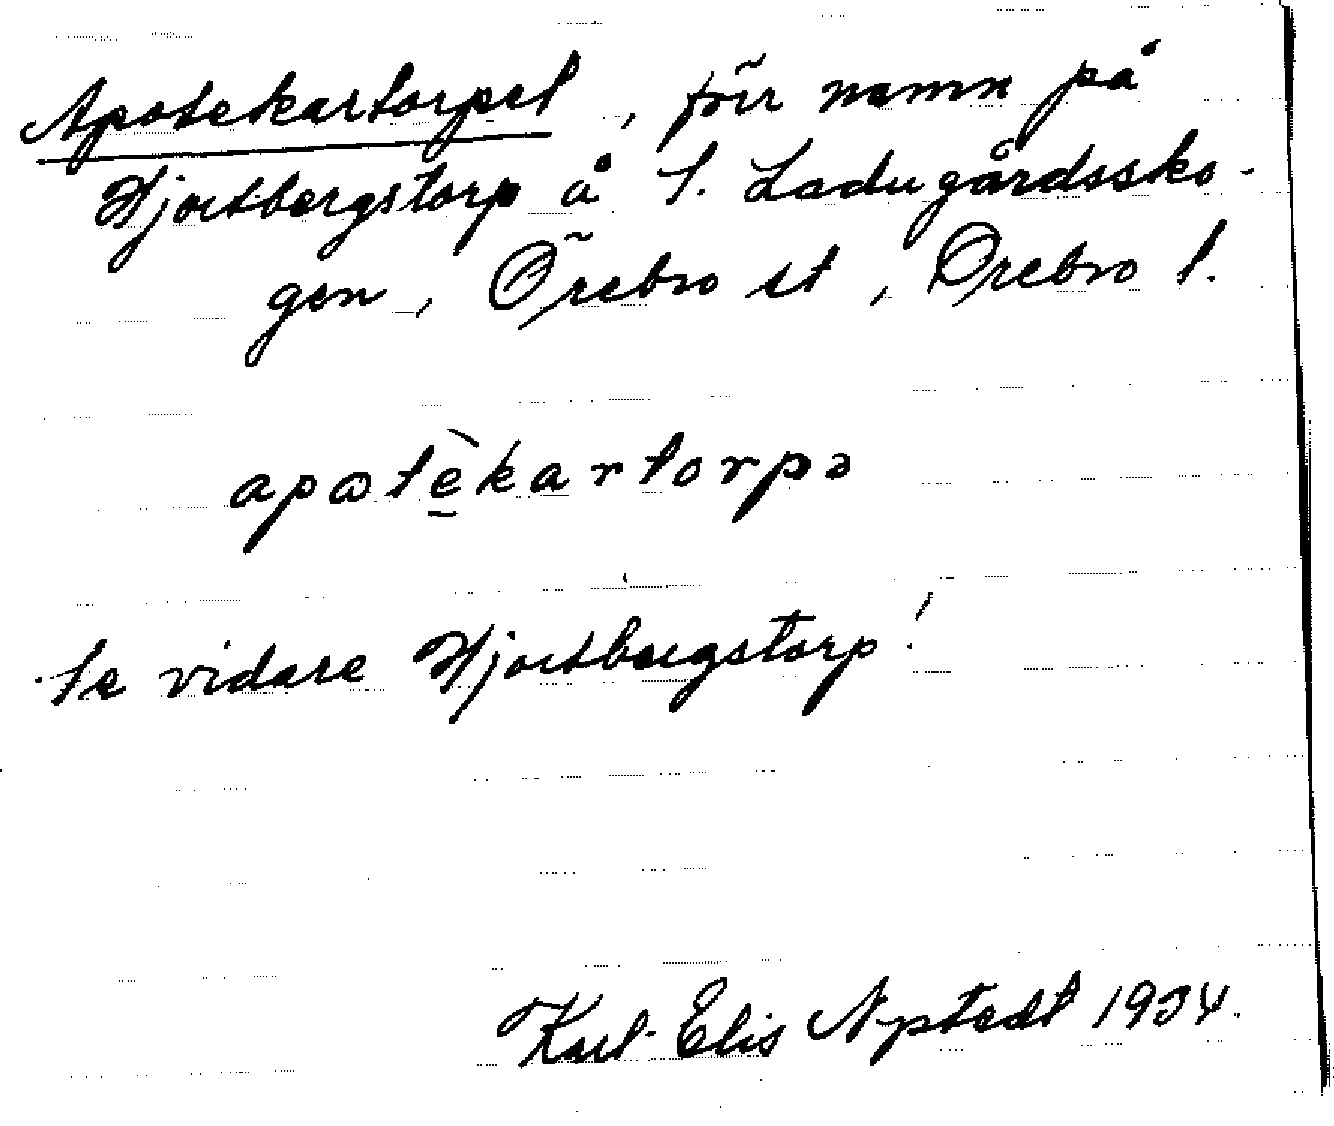 Apotekartorpet, förr namn på
Hjortbergstorp å S. Ladugårdssko-
gen, Örebro st, Örebro l.
apɷtèkartorpə
Se vidare Hjortbergstorp!
Karl-Elis Nystedt 1934.